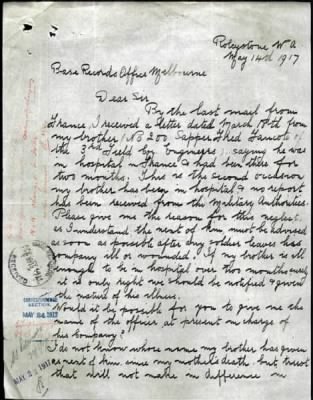 Roleystone W A
May 14th 1917
Base Records Office Melbourne
Dear Sir
By the last mail from
France, I received a letter dated March 18th from
my brother No 5200 Sapper Fred
the 3rd Field Coy Engineers saying he was
in hospital in France & had been there for
two months. This is the second occasion
my brother has been in hospital & no report
has been received from the Military Authorities.
Please give me the reason for this neglect
as I understand the next of kin must be advised
as soon as possible after any soldier leaves his
company ill or wounded. If my brother is ill
enough to be in hospital over two months surely
it is only right we should be notified & given
the nature of his illness.
Would it be possible for you to give me the
name of the officer at present in charge of
his Company?
I do not know whose name my brother has given
as next of kin since my mothers death, but trust
that will not make in difference in
MAY 24 1917
MAY 23 1917